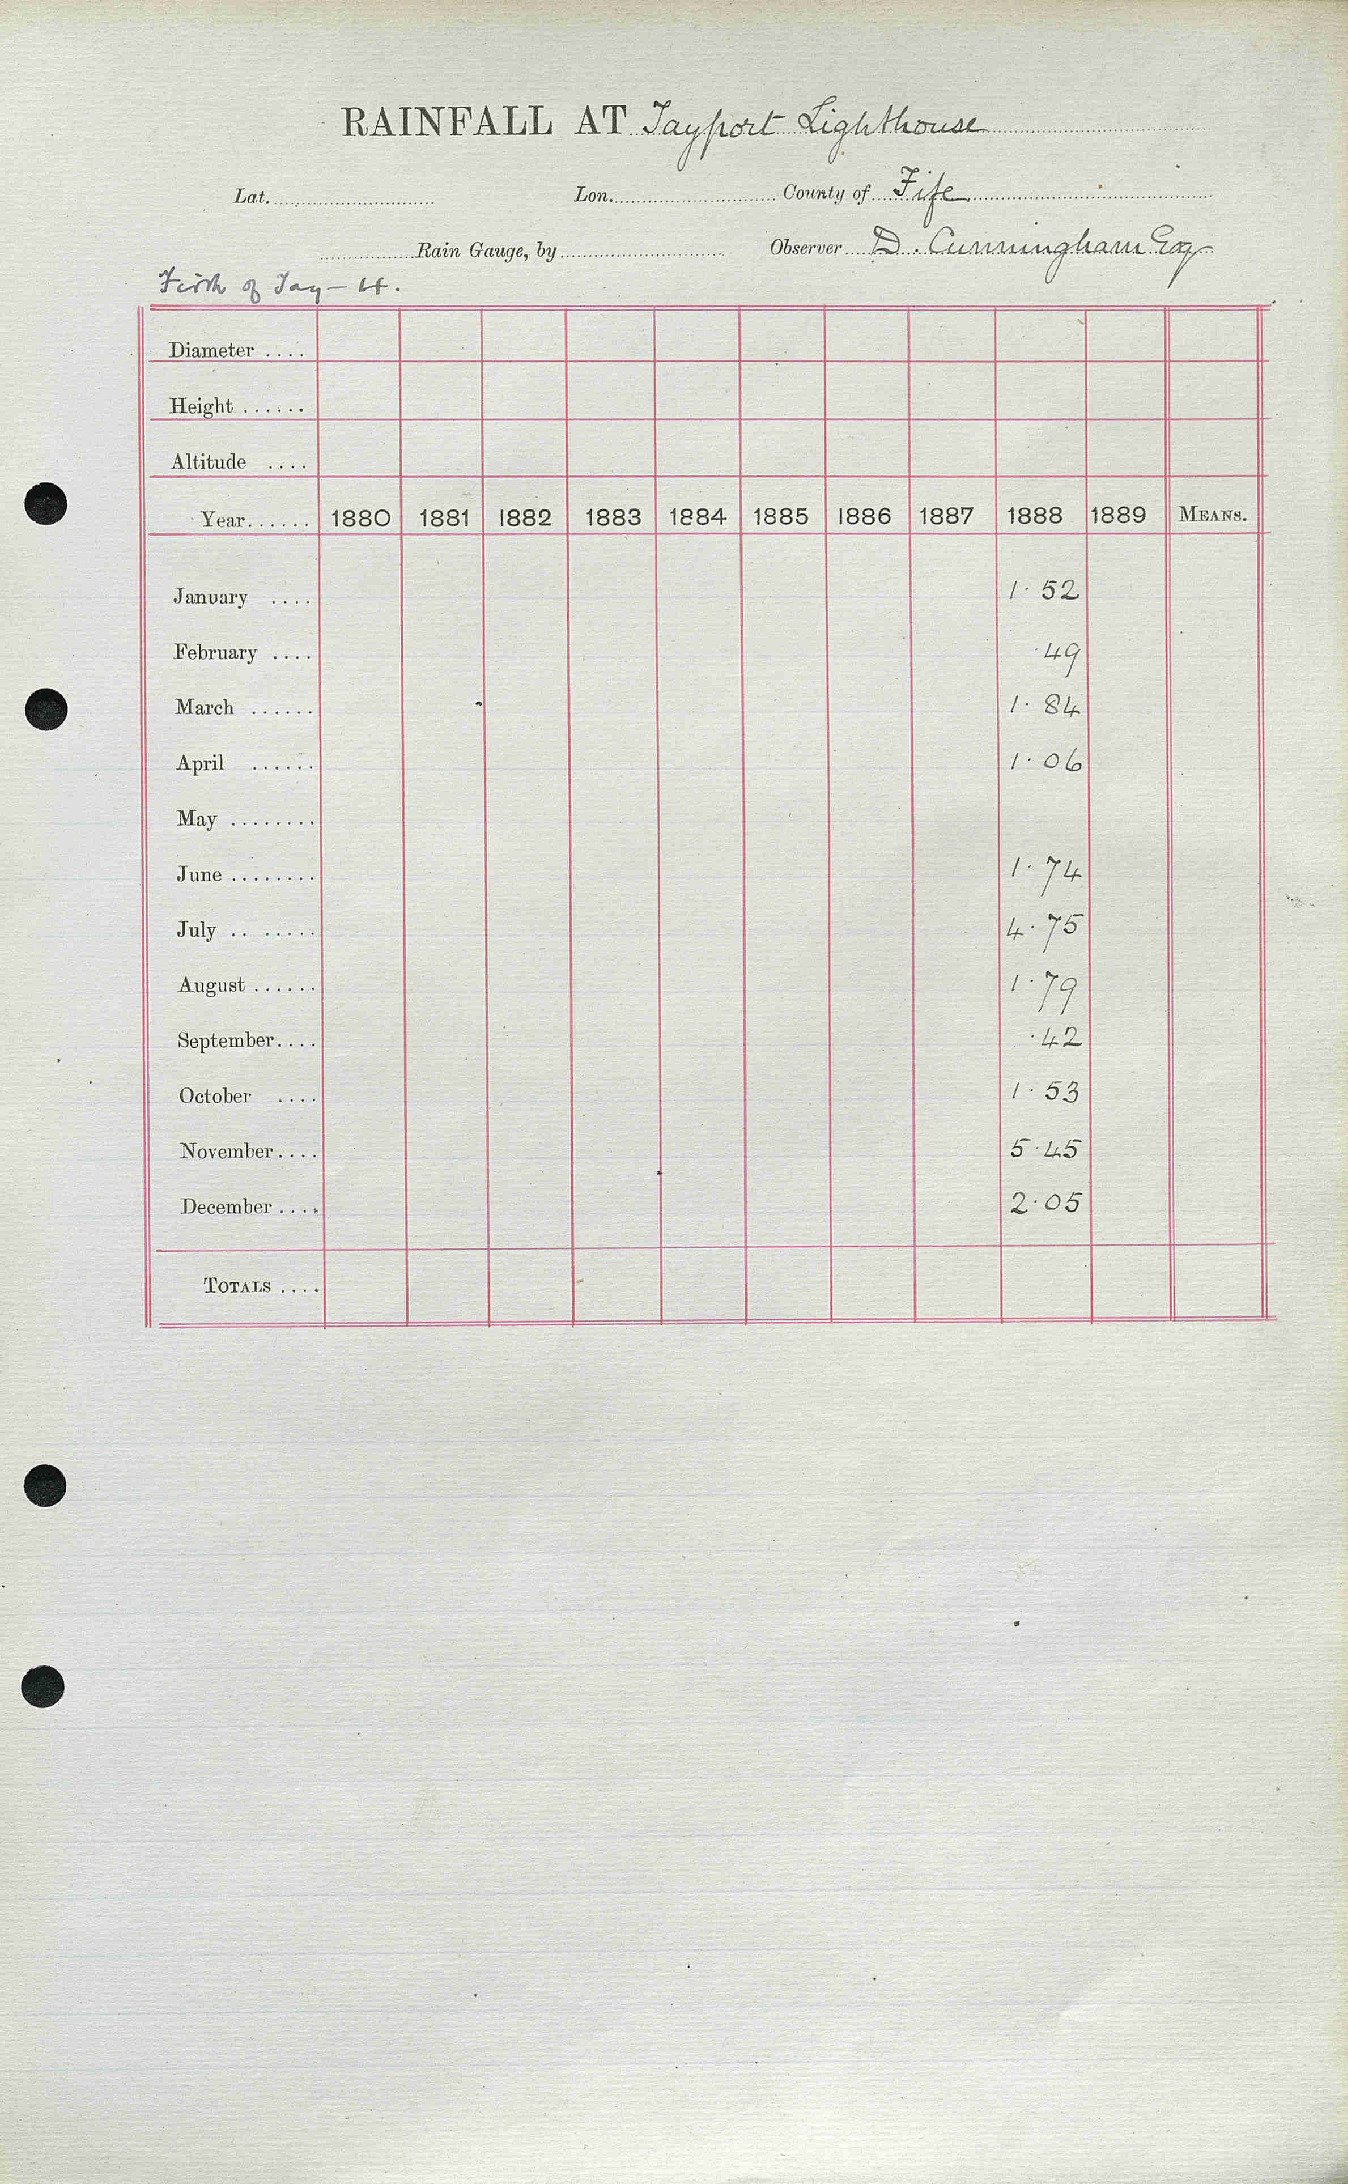 RAINFALL AT Tayport Lighthouse
Lat. Lon. County of Fife
Rain Gauge, by Observer D. Cunningham Esq
Firth of Tay - 4.
Diameter ....
Height ......
Altitude ....
Year...... 1880 1881 1882 1883 1884 1885 1886 1887 1888 1889 MEANS.
January .... 1.52
February .... .49
March ...... 1.84
April ...... 1.06
May ........
June ........ 1.74
July .. ...... 4.75
August ...... 1.79
September.... .42
October .... 1.53
November.... 5.45
December .... 2.05
TOTALS ....